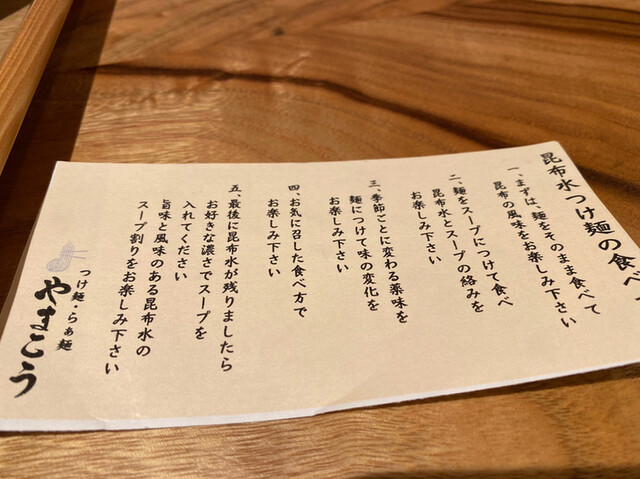 昆布水つけ麺の食べ
一、まずは、麺をそのまま食べて
昆布の風味をお楽しみ下さい
二、麺をスープにつけて食べ
昆布水とスープの絡みを
お楽しみ下さい
三、季節ごとに変わる薬味を
麺につけて味の変化を
お楽しみ下さい
四、お気に召した食べ方で
お楽しみ下さい
五、最後に昆布水が残りましたら
お好きな濃さでスープを
入れてください
旨味と風味のある昆布水の
スープ割りをお楽しみ下さい
つけ麺・らぁ麺
やまこう